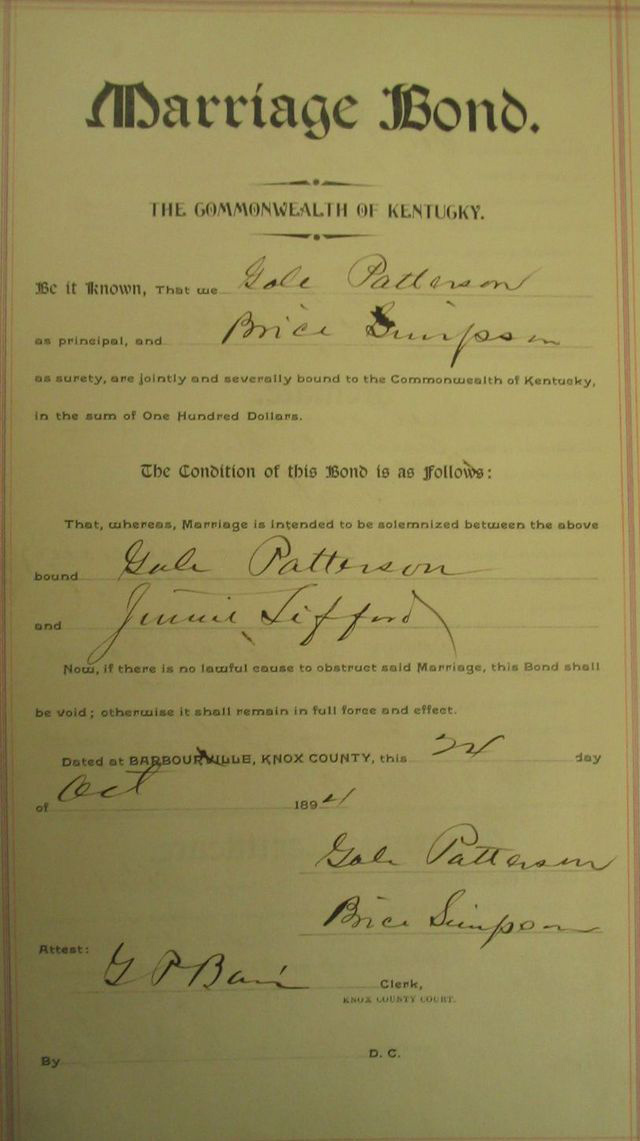 Marriage Bond.
THE COMMONWEALTH OF KENTUCKY.
Be it Known, That we Gale Patterson
as principal, and Brice Simpson
as surety, are jointly and severally bound to the Commonwealth of Kentucky,
in the sum of One Hundred Dollars.
The Condition of this Bond is as Follows:
That, whereas, Marriage is intended to be solemnized between the above
bound Gale Patterson
and Jennie
Now, if there is no lawful cause to obstruct said Marriage, this Bond shall
be void; otherwise it shall remain in full force and effect.
Dated at BARBOURVILLE, KNOX COUNTY, this 24 day
of Oct 1894
Gale Patterson
Brice Simpson
Attest:
G P Bain Clerk,
KNOX COUNTY COURT.
By D. C.